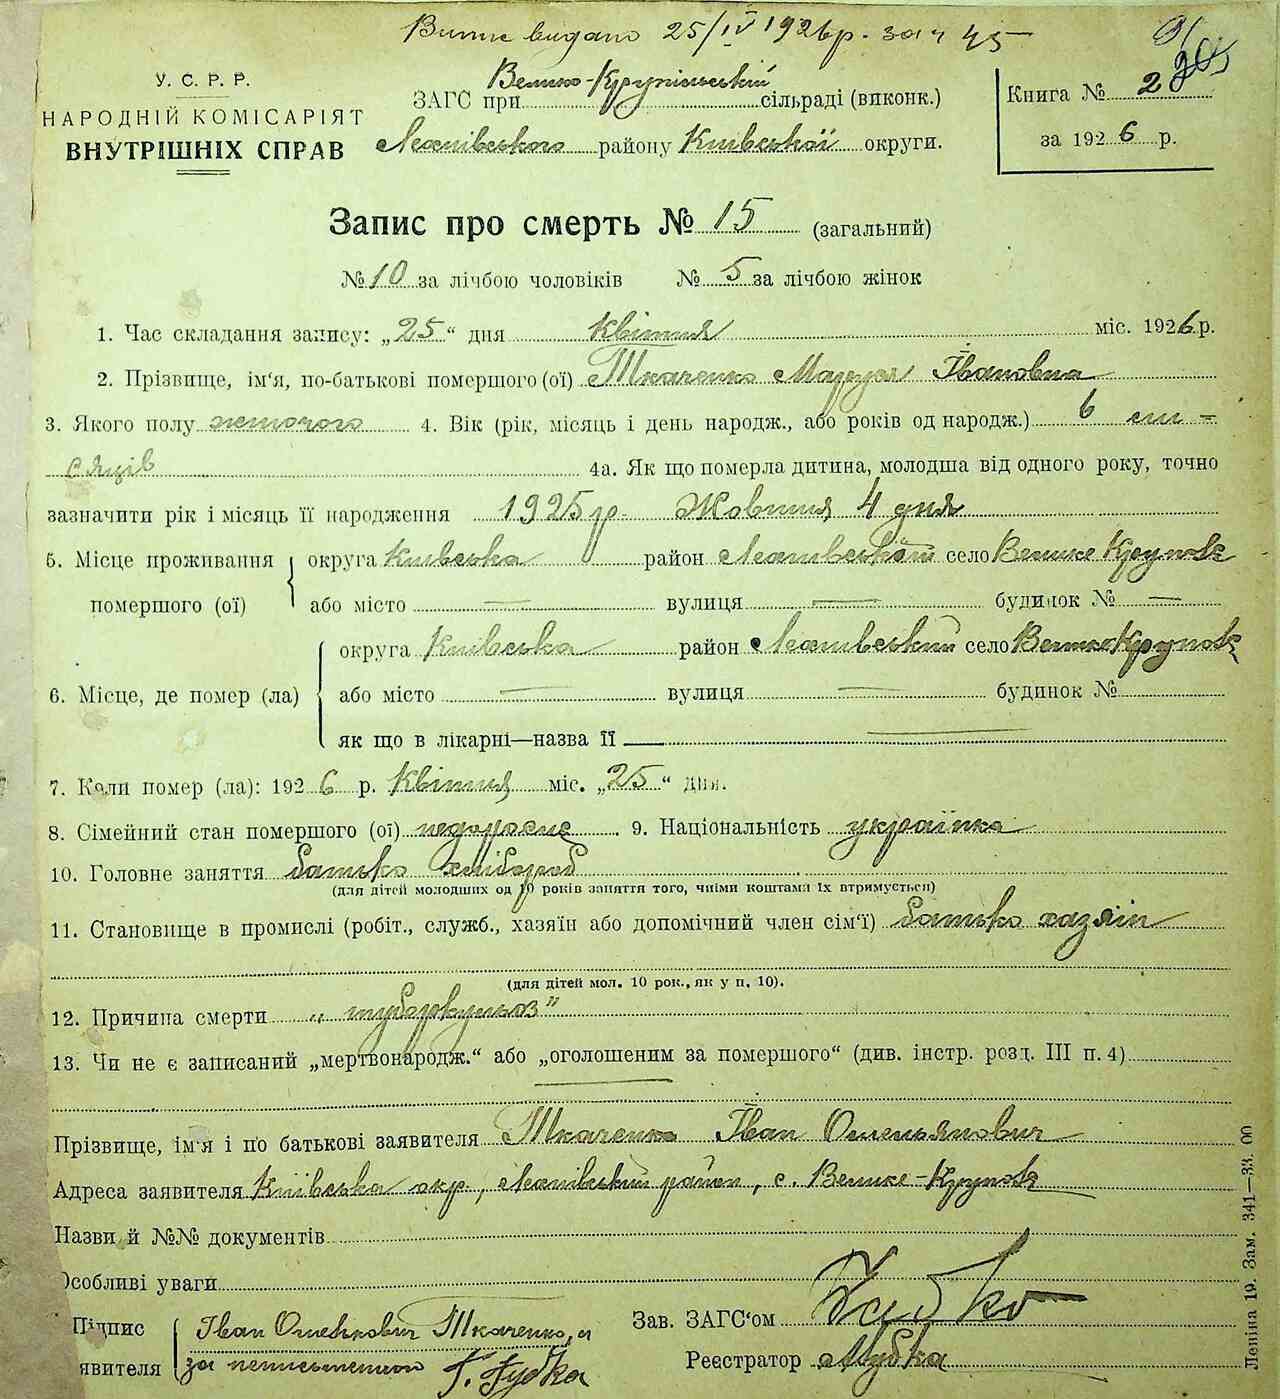 Витяг видано 25/IV 1926р. за ч 45
У. С. Р. Р.
НАРОДНІЙ КОМІСАРІЯТ
ВНУТРІШНІХ СПРАВ
ЗАГС при Велико-Крупільській сільраді (виконк.)
району Київської округи.
Книга № 2
за 1926 р.
Запис про смерть № 15 (загальний)
№ 10 за лічбою чоловіків № 5 за лічбою жінок
1. Час складання запису: „25“ дня Квітня міс. 1926 р.
2. Прізвище, ім'я, по-батькові помершого (ої) Ткаченко Маруся Івановна
3. Якого полу жіночого 4. Вік (рік, місяць і день народж., або років од народж.) 6 мі-
сяців 4а. Як що померла дитина, молодша від одного року, точно
зазначити рік і місяць її народження 1925 р. Жовтня 4 дня
5. Місце проживання помершого (ої) округа Київська район село Велике Крупілля
або місто — вулиця — будинок № —
6. Місце, де помер (ла) округа Київська район село Велике Крупілля
або місто — вулиця — будинок №
як що в лікарні—назва її —
7. Коли помер (ла): 1926 р. Квітня міс. „25“ дня.
8. Сімейний стан помершого (ої) 9. Національність українка
10. Головне заняття батько хлібороб
(для дітей молодших од 10 років заняття того, чиїми коштами їх втримується)
11. Становище в промислі (робіт., служб., хазяїн або допомічний член сім'ї) батько хазяїн
(для дітей мол. 10 рок., як у п. 10).
12. Причина смерти „туберкульоз"
13. Чи не є записаний „мертвонародж.“ або „оголошеним за помершого“ (див. інстр. розд. III п. 4)
Прізвище, ім'я і по батькові заявителя Ткаченко Іван Омельянович
Адреса заявителя Київська окр., район, с. Велике-Крупілля
Назви й №№ документів
Особливі уваги
Підпис Іван Омелькович Ткаченко, а
явителя за неписьменного Г. Губка
Зав. ЗАГС'ом
Реєстратор
Леніна 19. Зам. 341—33. 00